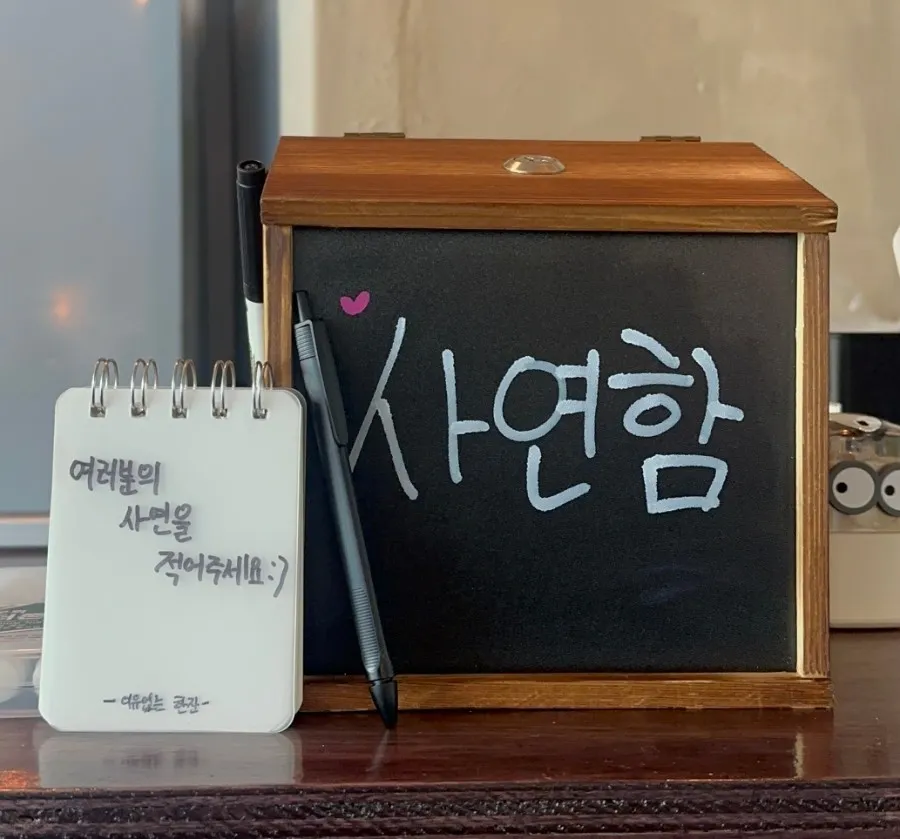 여러분의
사연을
적어주세요:)
-여유없는 한잔-
사연함